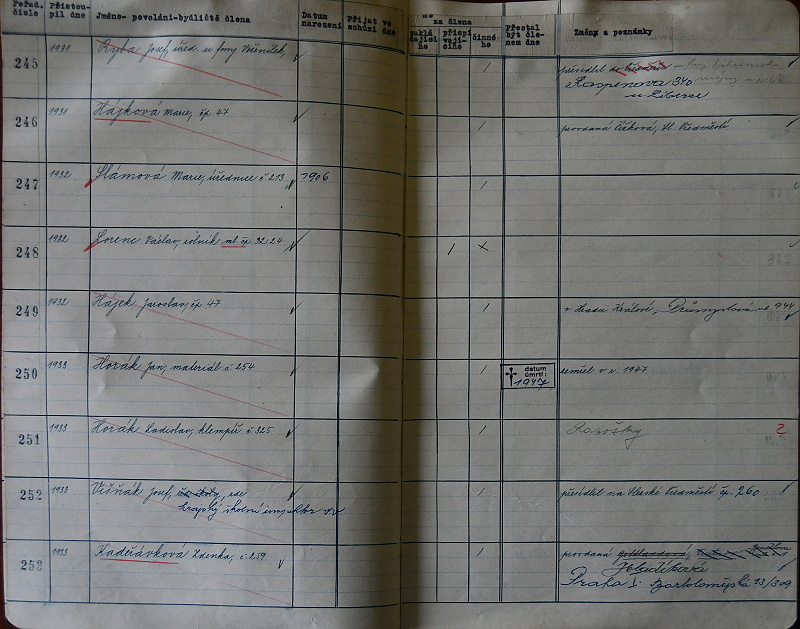 Pořad. číslo
Přistoupil dne
Jméno- povolání-bydliště člena
Datum narození
Přijat ve schůzi dne
za člena
zakládajícího
přispívajícího
činného
Přestal být členem dne
Změny a poznámky
245 1931 Ryba Josef, úřed. u firmy / přesídlil
Kasperova 340
u Liberce
246 1931 Hájková Marie, čp 47 / provdaná Vl. Předměstí
247 1932 Slámová Marie, úřednice č 213 1906 /
248 1932 Lorenc Václav, rolník ml čp 32 24 / x
249 1932 Hájek Jaroslav, čp 47 / v Hradci Králové, Průmyslová ul 944
250 1933 Horák Jan, materiál č 254 / datum úmrtí: 1947 zemřel v r. 1947
251 1933 Horák Ladislav, klempíř č 325 / 2
252 1933 Višňák Josef, zde / přesídlil na Slezské Předměstí čp. 260
krajský školní inspektor v.v.
253 1933 Kadeřávková Zdenka, č 259 / provdaná
Hladíková
Praha I. Bartolomějská 13/309